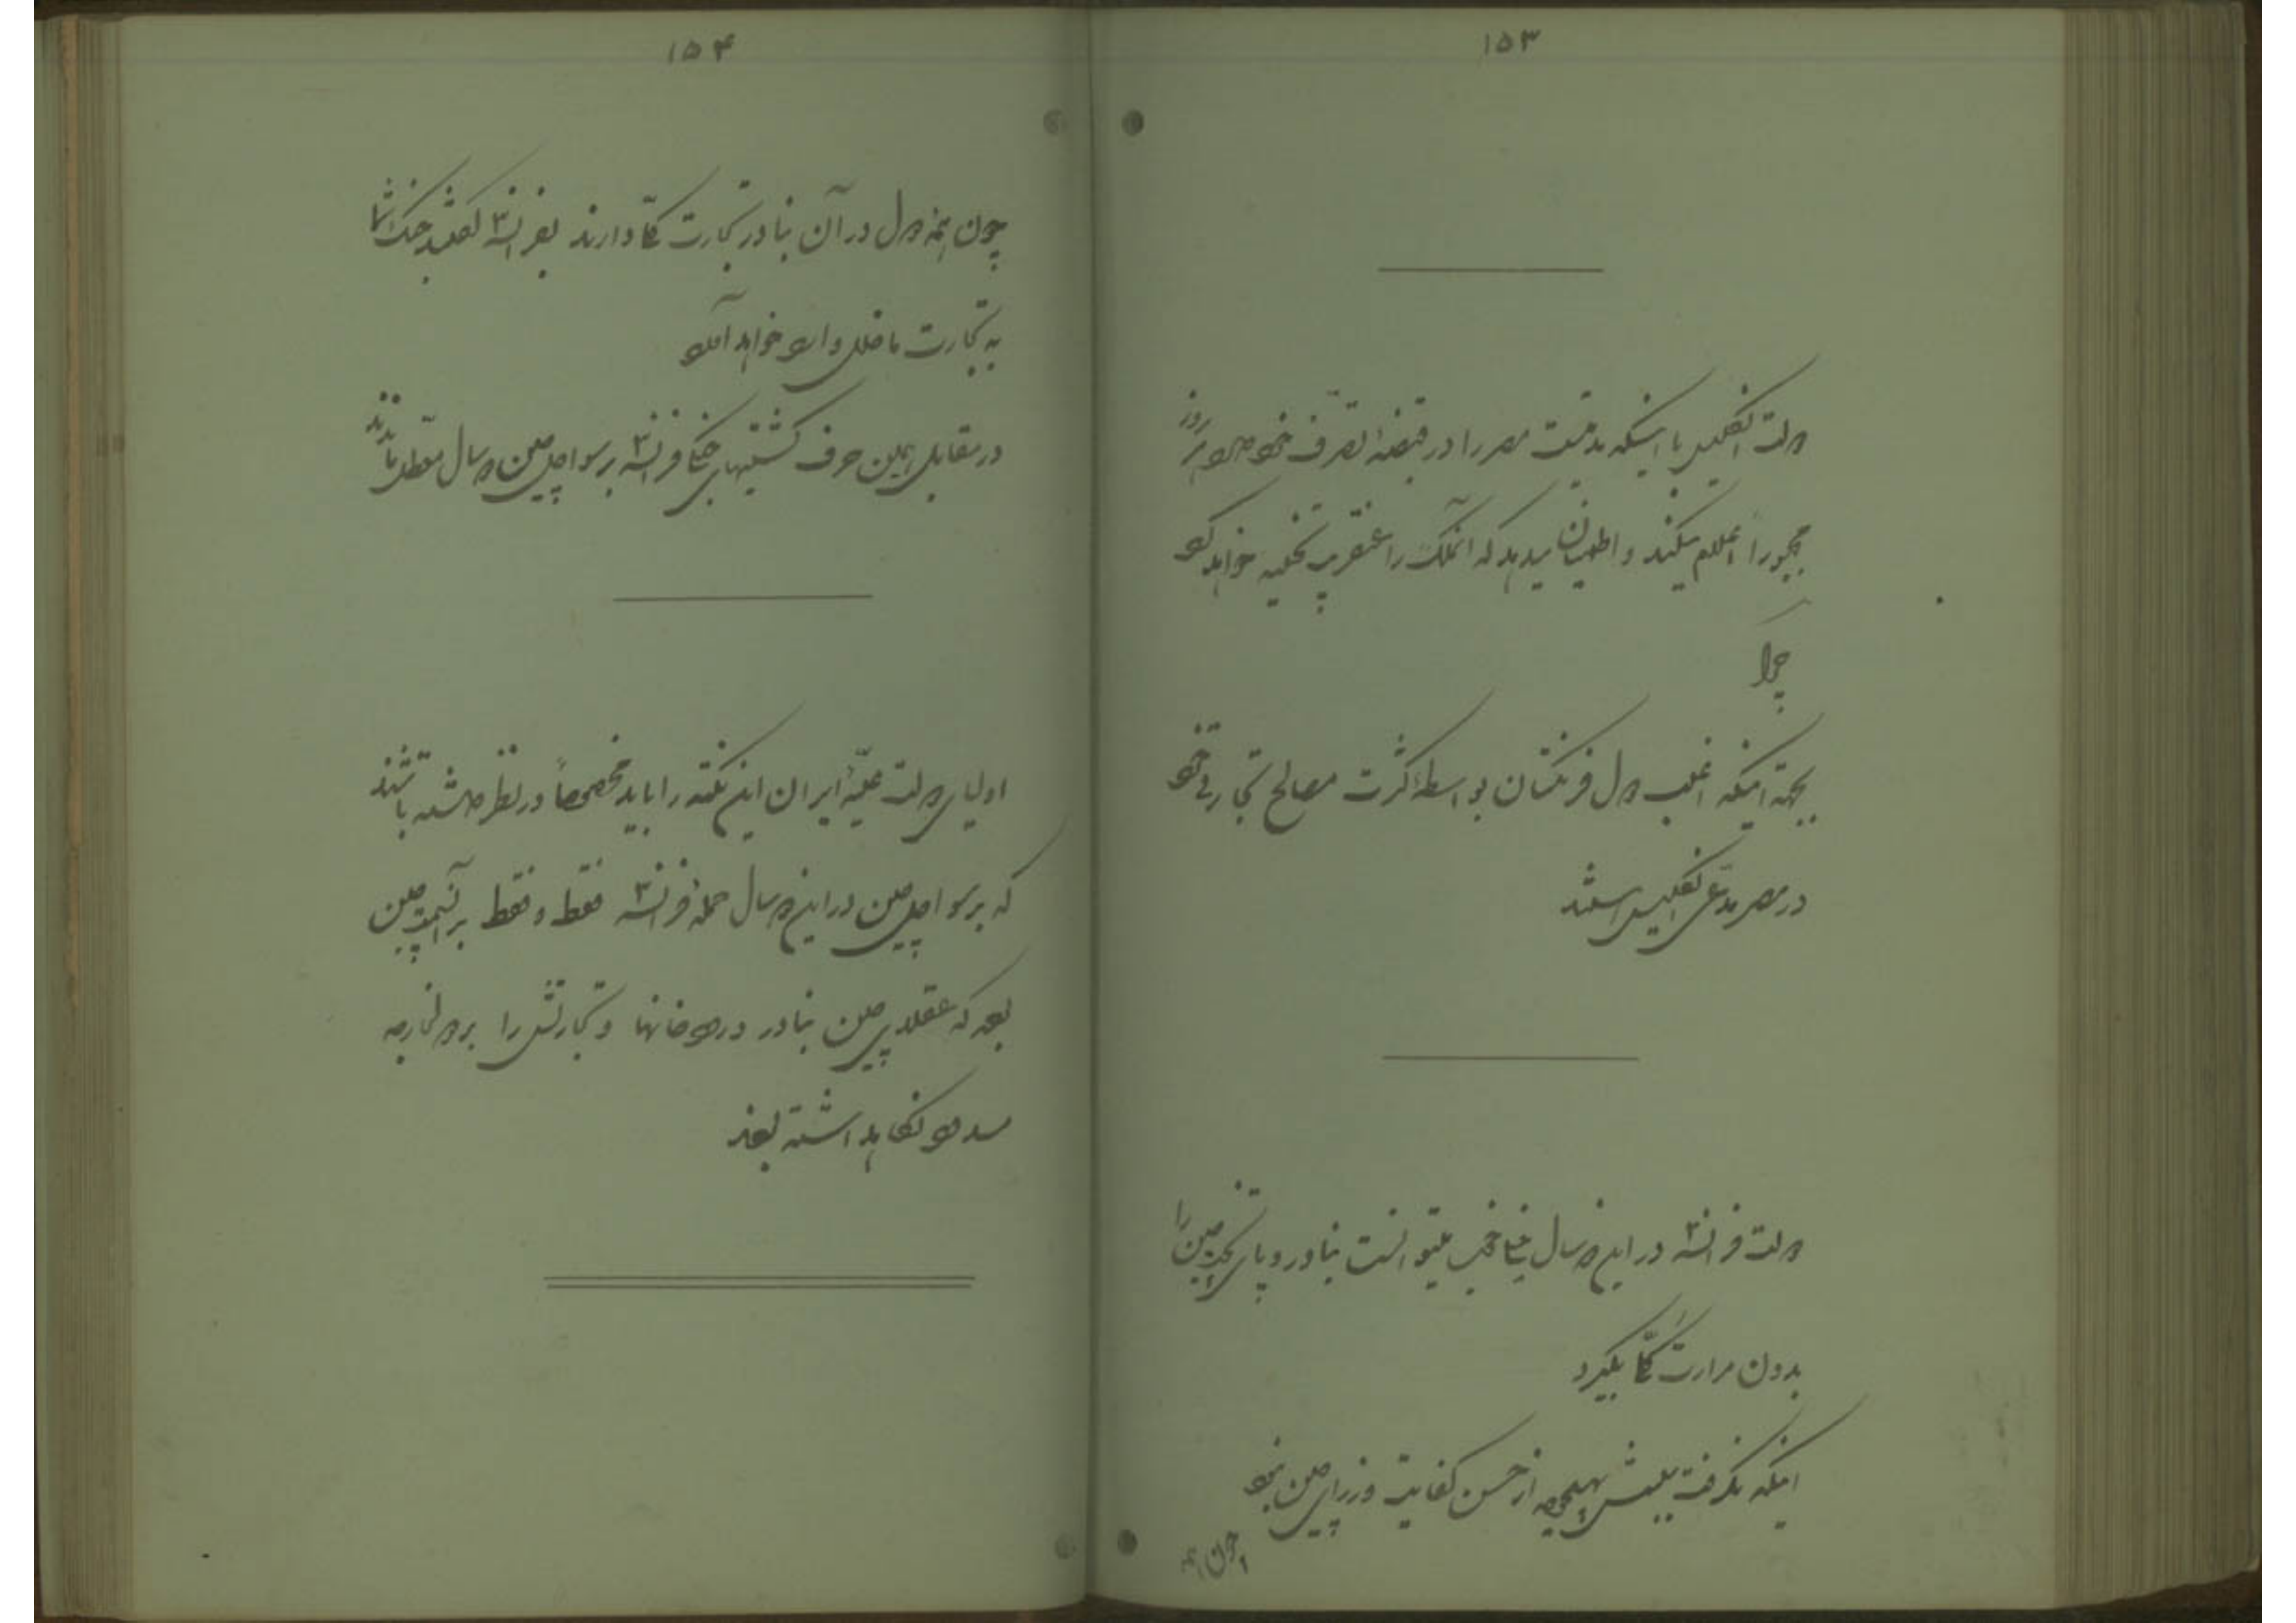 ۱۵۳
دولت انگلیس با اینکه مدتیست مصر را در قبضهٔ تصرف خود دارد هر روز
مجبوراً اعلام میکند و اطمینان میدهد که آنملک را عنقریب تخلیه خواهد کرد
چرا
بجهة اینکه اغلب دول فرنگستان بواسطهٔ کثرت مصالح تجارتی خود
در مصر مدعی انگلیس هستند
دولت فرانسه در این دو سال یقیناً خوب میتوانست بنادر و پای تخت چین را
بدون مرارت کلی بگیرد
اینکه نگرفت سببش بهیچوجه از حسن کفایت وزرای چین نبود
چون همه
۱۵۴
چون همه دول در آن بنادر تجارت کلی دارند بفرانسه گفتند جنگ شما
به تجارت ما خلل وارد خواهد آورد
در مقابل همین حرف کشتیهای جنگی فرانسه بر سواحل چین دو سال معطل ماندند
اولیای دولت علیّهٔ ایران این نکته را باید مخصوصاً در نظر داشته باشند
که بر سواحل چین در این دو سال حملهٔ فرانسه فقط و فقط بر آنسمت چین
بود که عقلای چین بنادر و رودخانها و تجارتش را بر دول خارجه
مسدود نگاهداشته بودند